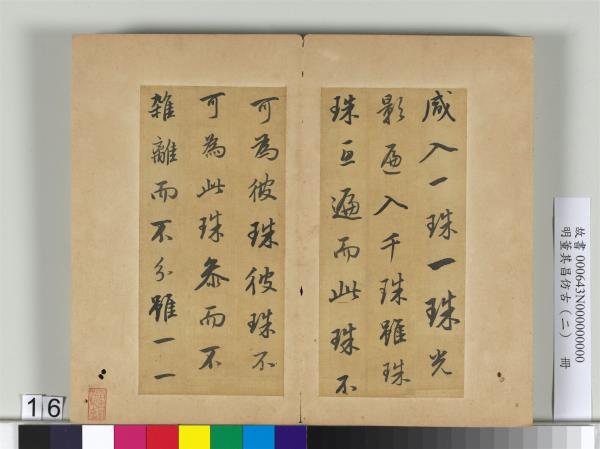 咸入一珠一珠光
影遍入千珠雖珠
珠亘遍而此珠不
可為彼珠彼珠不
可為此珠叅而不
雜離而不分雖一一
故書 000643N000000000
明董其昌仿古（二） 冊
16